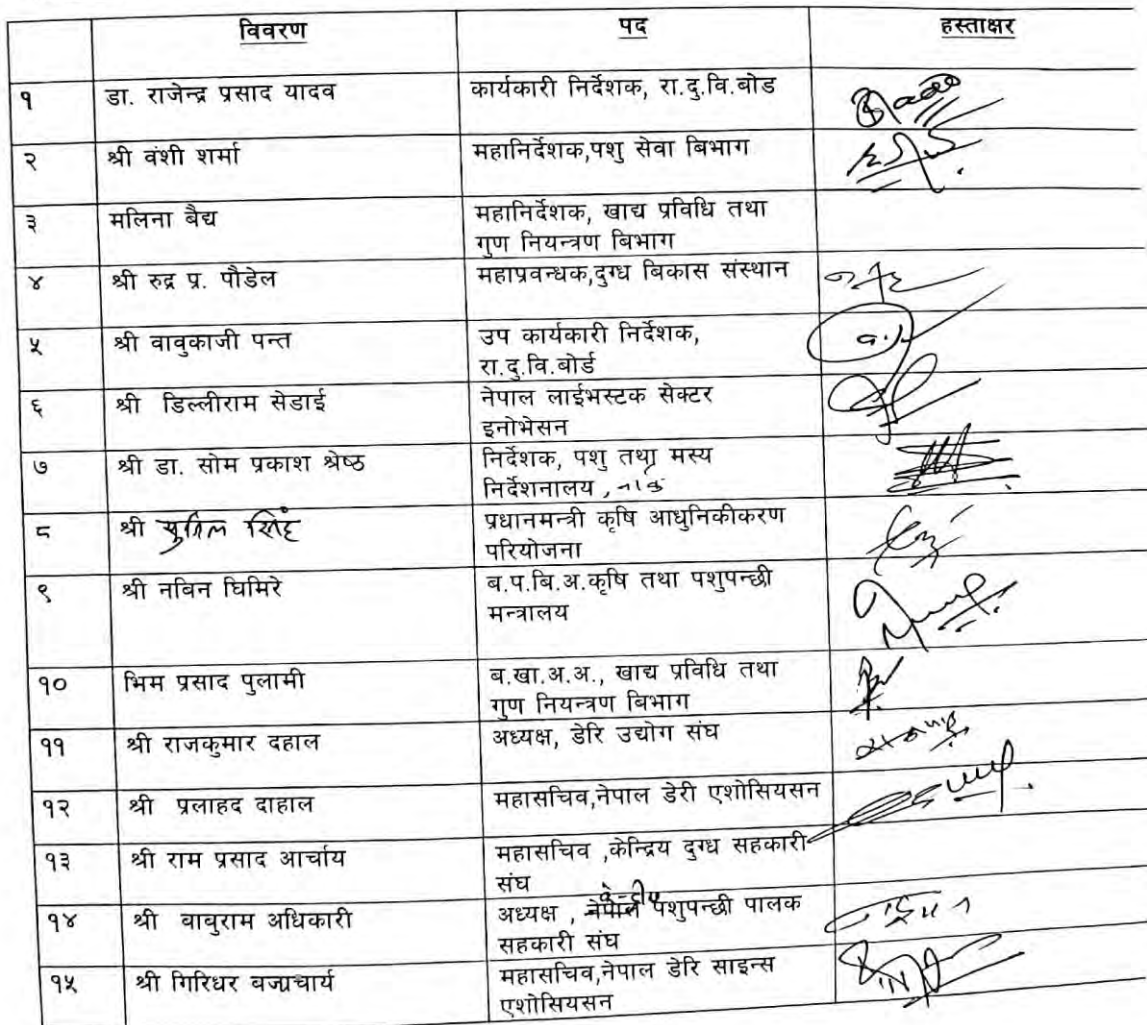 विवरण पद हस्ताक्षर
१ डा. राजेन्द्र प्रसाद यादव कार्यकारी निर्देशक, रा.दु.वि.बोड
२ श्री वंशी शर्मा महानिर्देशक,पशु सेवा बिभाग
३ मलिना बैद्य महानिर्देशक, खाद्य प्रविधि तथा
गुण नियन्त्रण बिभाग
४ श्री रुद्र प्र. पौडेल महाप्रवन्धक,दुग्ध बिकास संस्थान
५ श्री वावुकाजी पन्त उप कार्यकारी निर्देशक,
रा.दु.वि.बोर्ड
६ श्री डिल्लीराम सेडाई नेपाल लाईभस्टक सेक्टर
इनोभेसन
७ श्री डा. सोम प्रकाश श्रेष्ठ निर्देशक, पशु तथा मस्य
निर्देशनालय ,
८ श्री सिंह प्रधानमन्त्री कृषि आधुनिकीकरण
परियोजना
९ श्री नबिन घिमिरे ब.प.बि.अ.कृषि तथा पशुपन्छी
मन्त्रालय
१० भिम प्रसाद पुलामी ब.खा.अ.अ., खाद्य प्रविधि तथा
गुण नियन्त्रण बिभाग
११ श्री राजकुमार दहाल अध्यक्ष, डेरि उद्योग संघ
१२ श्री प्रलाहद दाहाल महासचिव,नेपाल डेरी एशोसियसन
१३ श्री राम प्रसाद आर्चाय महासचिव ,केन्द्रिय दुग्ध सहकारी
संघ
१४ श्री वावुराम अधिकारी अध्यक्ष , नेपाल पशुपन्छी पालक
सहकारी संघ
१५ श्री गिरिधर बज्राचार्य महासचिव,नेपाल डेरि साइन्स
एशोसियसन